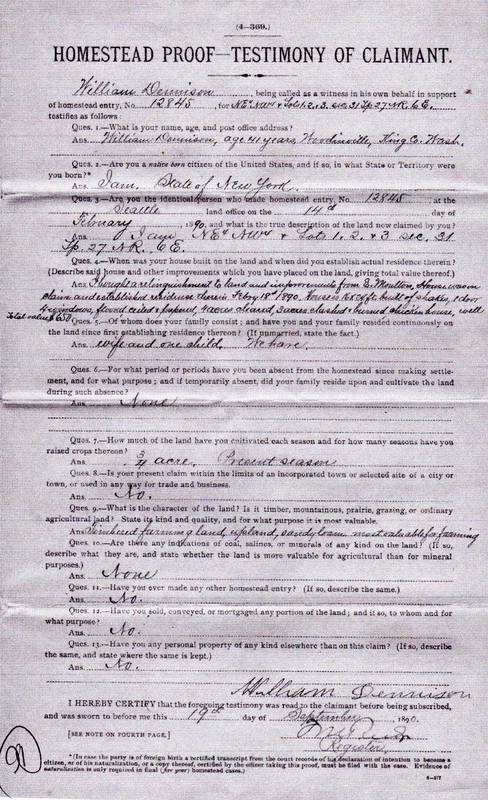 (4—369.)
HOMESTEAD PROOF—TESTIMONY OF CLAIMANT.
William Dennison, being called as a witness in his own behalf in support
of homestead entry, No. 12845, for NE4 NW4 & Lots 1, 2, & 3, sec. 31 Tp. 27 N.R. 6 E.
testifies as follows:
Ques. 1.—What is your name, age, and post office address?
Ans. William Dennison, age 41 years Woodinville, King Co. Wash.
Ques. 2.—Are you a native born citizen of the United States, and if so, in what State or Territory were
you born?*
Ans. I am, State of New York.
Ques. 3.—Are you the identical person who made homestead entry, No. 12845 at the
Seattle land office on the 14th day of
February 1890, and what is the true description of the land now claimed by you?
Ans. I am, NE4 NW4 & Lots 1, 2, & 3 sec. 31
Tp. 27 N.R. 6 E.
Ques. 4.—When was your house built on the land and when did you establish actual residence therein?
(Describe said house and other improvements which you have placed on the land, giving total value thereof.)
Ans. I bought a relinquishment to land and improvements from E. Moulton, House was on
claim and established residence therein Feby 18th 1890, house is built of shakes, 1 door
windows, floored ceiled & papered, 4 acres cleared, 3 acres slashed & burned chicken house, well
total value $650.
Ques. 5.—Of whom does your family consist; and have you and your family resided continuously on
the land since first establishing residence thereon? (If unmarried, state the fact.)
Ans. wife and one child, We have.
Ques. 6.—For what period or periods have you been absent from the homestead since making settle-
ment, and for what purpose; and if temporarily absent, did your family reside upon and cultivate the land
during such absence?
Ans. None
Ques. 7.—How much of the land have you cultivated each season and for how many seasons have you
raised crops thereon?
Ans. 3/4 acre, Present season
Ques. 8.—Is your present claim within the limits of an incorporated town or selected site of a city or
town, or used in any way for trade and business.
Ans. No.
Ques. 9.—What is the character of the land? Is it timber, mountainous, prairie, grazing, or ordinary
agricultural land? State its kind and quality, and for what purpose it is most valuable.
Ans. Timbered farming land, upland, sandy loam most valuable for farming
Ques. 10.—Are there any indications of coal, salines, or minerals of any kind on the land? (If so,
describe what they are, and state whether the land is more valuable for agricultural than for mineral
purposes.)
Ans. None
Ques. 11.—Have you ever made any other homestead entry? (If so, describe the same.)
Ans. No.
Ques. 12.—Have you sold, conveyed, or mortgaged any portion of the land; and if so, to whom and for
what purpose?
Ans. No.
Ques. 13.—Have you any personal property of any kind elsewhere than on this claim? (If so, describe
the same, and state where the same is kept.)
Ans. No.
William Dennison
I HEREBY CERTIFY that the foregoing testimony was read to the claimant before being subscribed,
and was sworn to before me this 19th day of September 1890.
[SEE NOTE ON FOURTH PAGE.]
Register
*(In case the party is of foreign birth a certified transcript from the court records of his declaration of intention to become a
citizen, or of his naturalization, or a copy thereof, certified by the officer taking this proof, must be filed with the case. Evidence of
naturalization is only required in final (five year) homestead cases.)